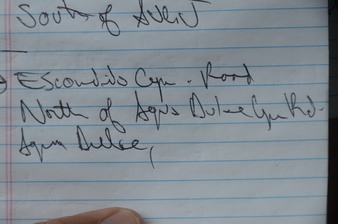 South of
Escondido Cyn. Road
North of Agua Dulce Cyn Rd.
Agua Dulce,